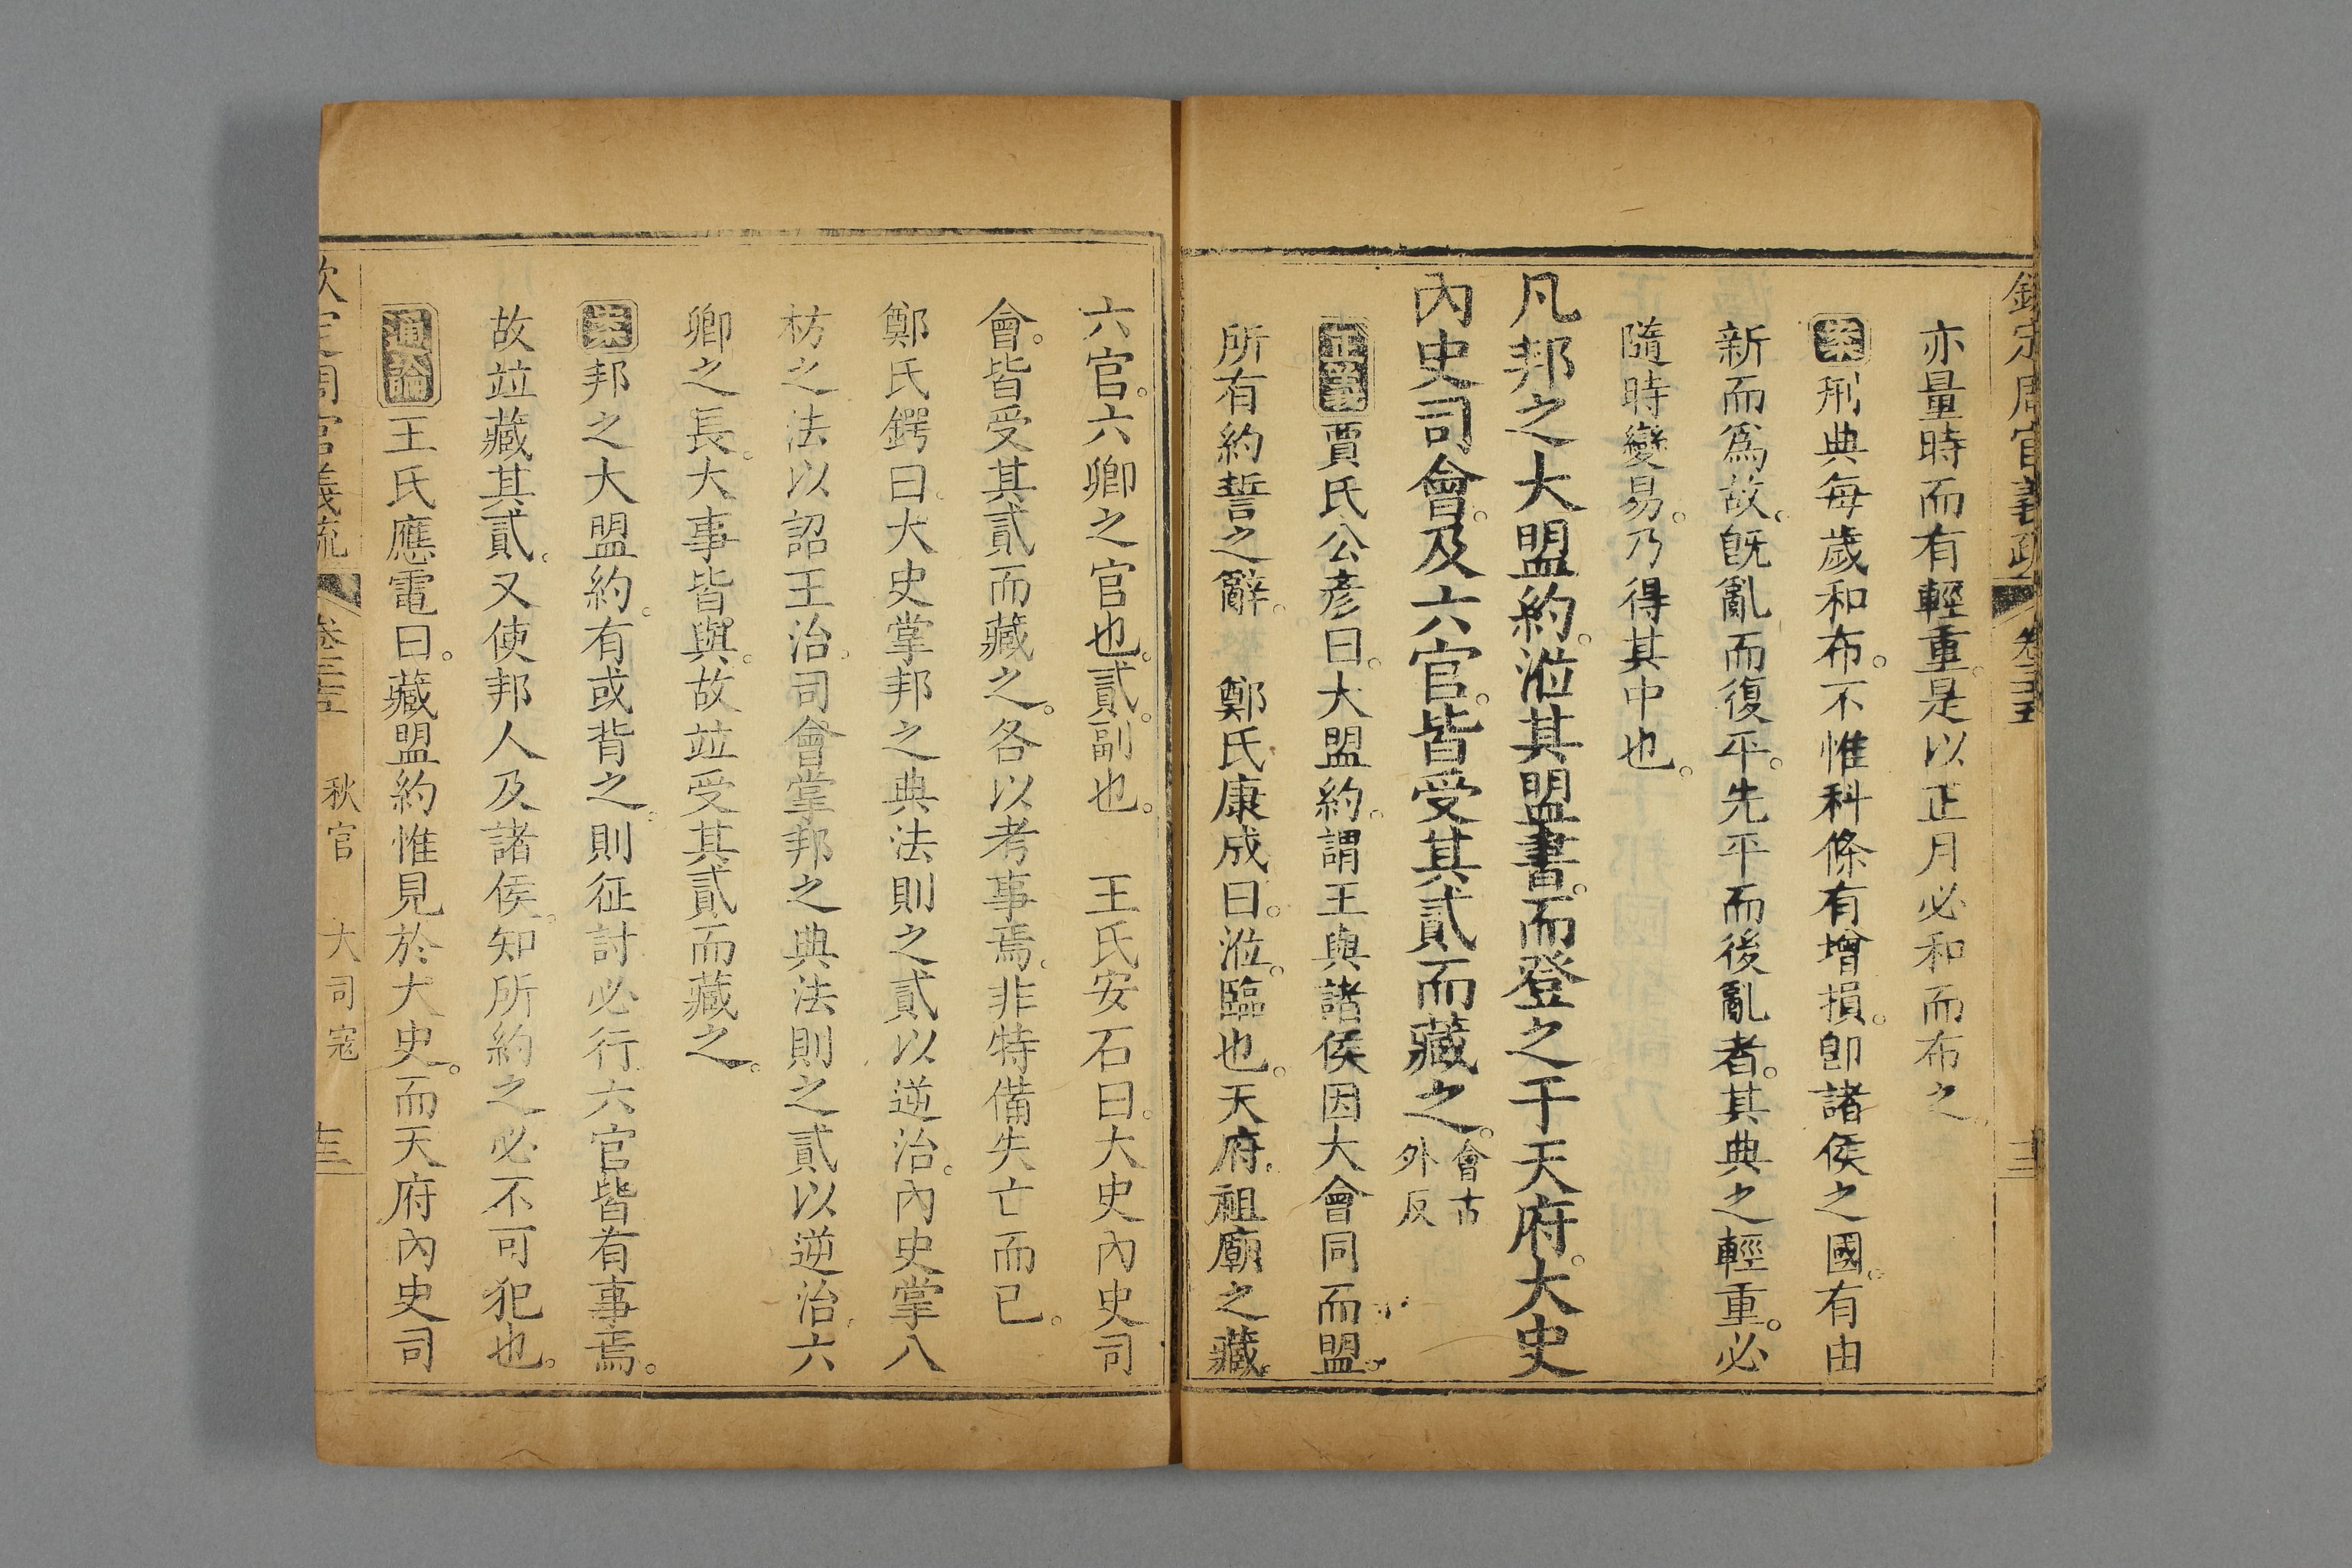 欽定周官義疏 卷三十五 十三
亦量時而有輕重。是以正月必和而布之。
案刑典每歲和布。不惟科條有增損。卽諸侯之國。有由
新而爲故。旣亂而復平。先平而後亂者。其典之輕重。必
隨時變易。乃得其中也。
凡邦之大盟約。涖其盟書。而登之于天府。大史
內史司會。及六官。皆受其貳而藏之。會古外反
正義賈氏公彥曰。大盟約。謂王與諸侯因大會同而盟。
所有約誓之辭。 鄭氏康成曰。涖。臨也。天府。祖廟之藏。
六官。六卿之官也。貳。副也。 王氏安石曰。大史內史司
會。皆受其貳而藏之。各以考事焉。非特備失亡而已。
鄭氏鍔曰。大史掌邦之典法則之貳以逆治。內史掌八
枋之法以詔王治。司會掌邦之典法則之貳以逆治。六
卿之長。大事皆與。故竝受其貳而藏之。
案邦之大盟約。有或背之。則征討必行。六官皆有事焉。
故竝藏其貳。又使邦人及諸侯。知所約之必不可犯也。
通論王氏應電曰。藏盟約惟見於大史。而天府內史司
欽定周官義疏 卷三十五 秋官 大司寇 十三